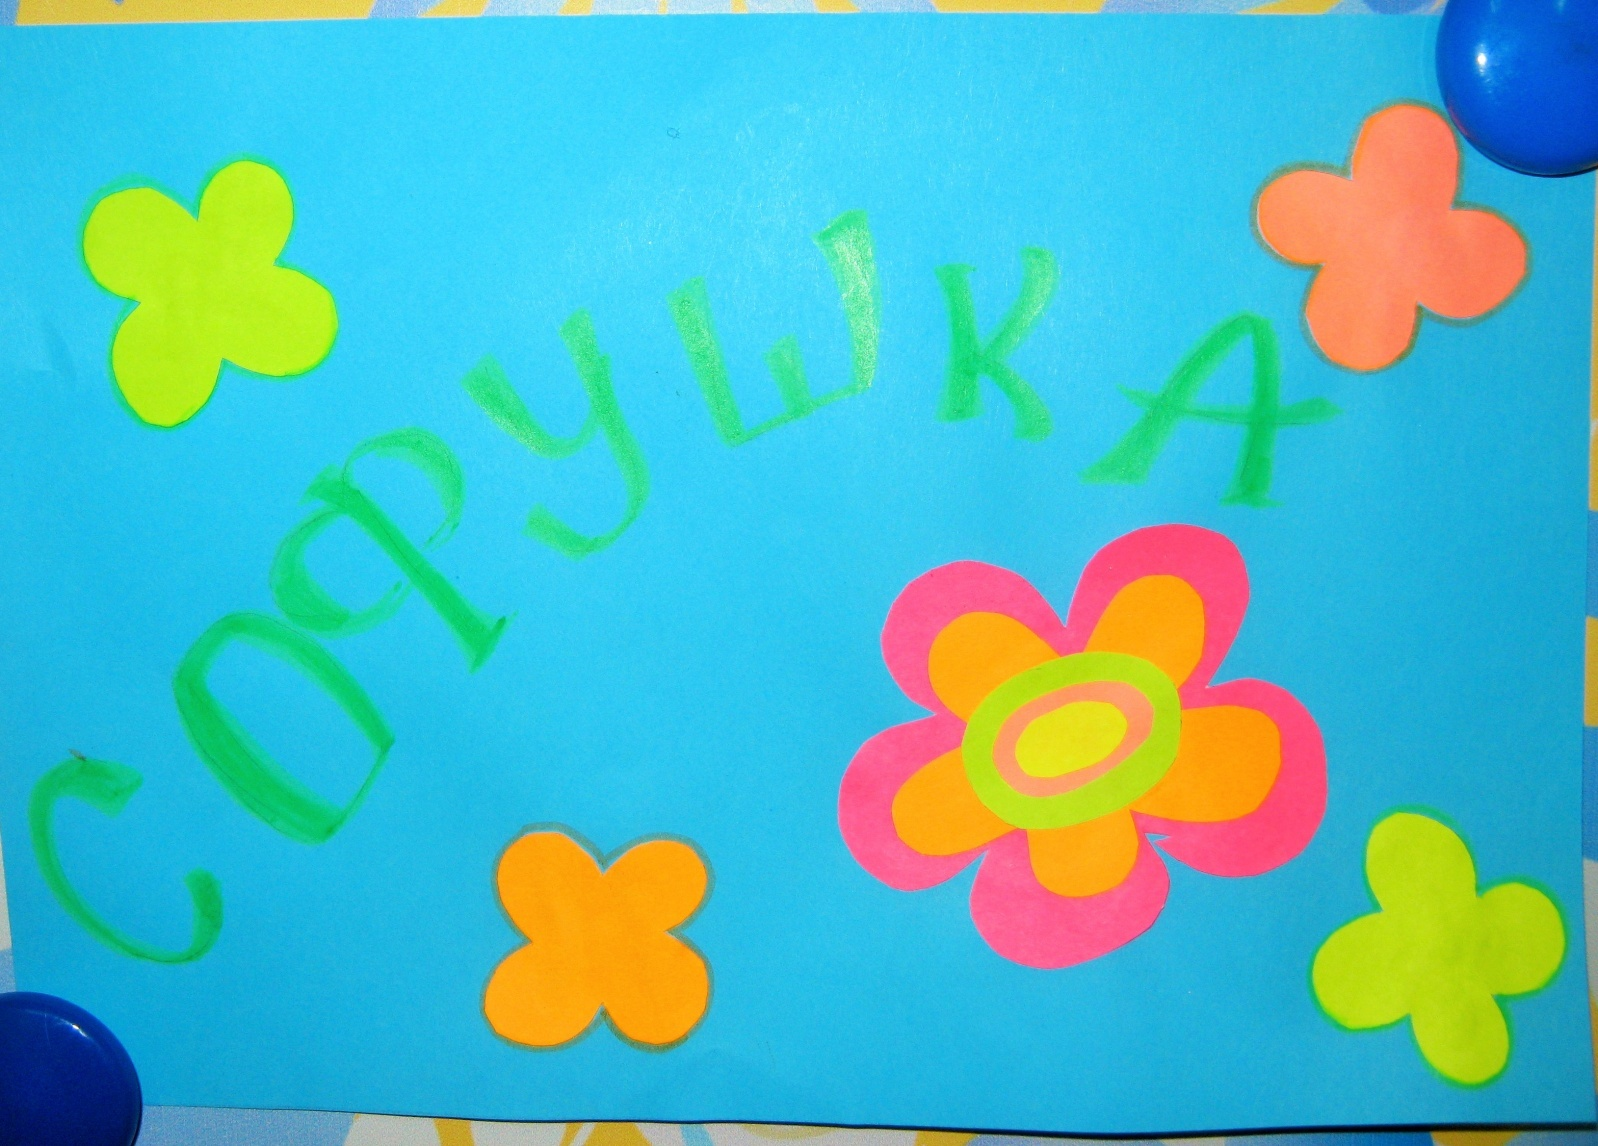 СОФУШКА